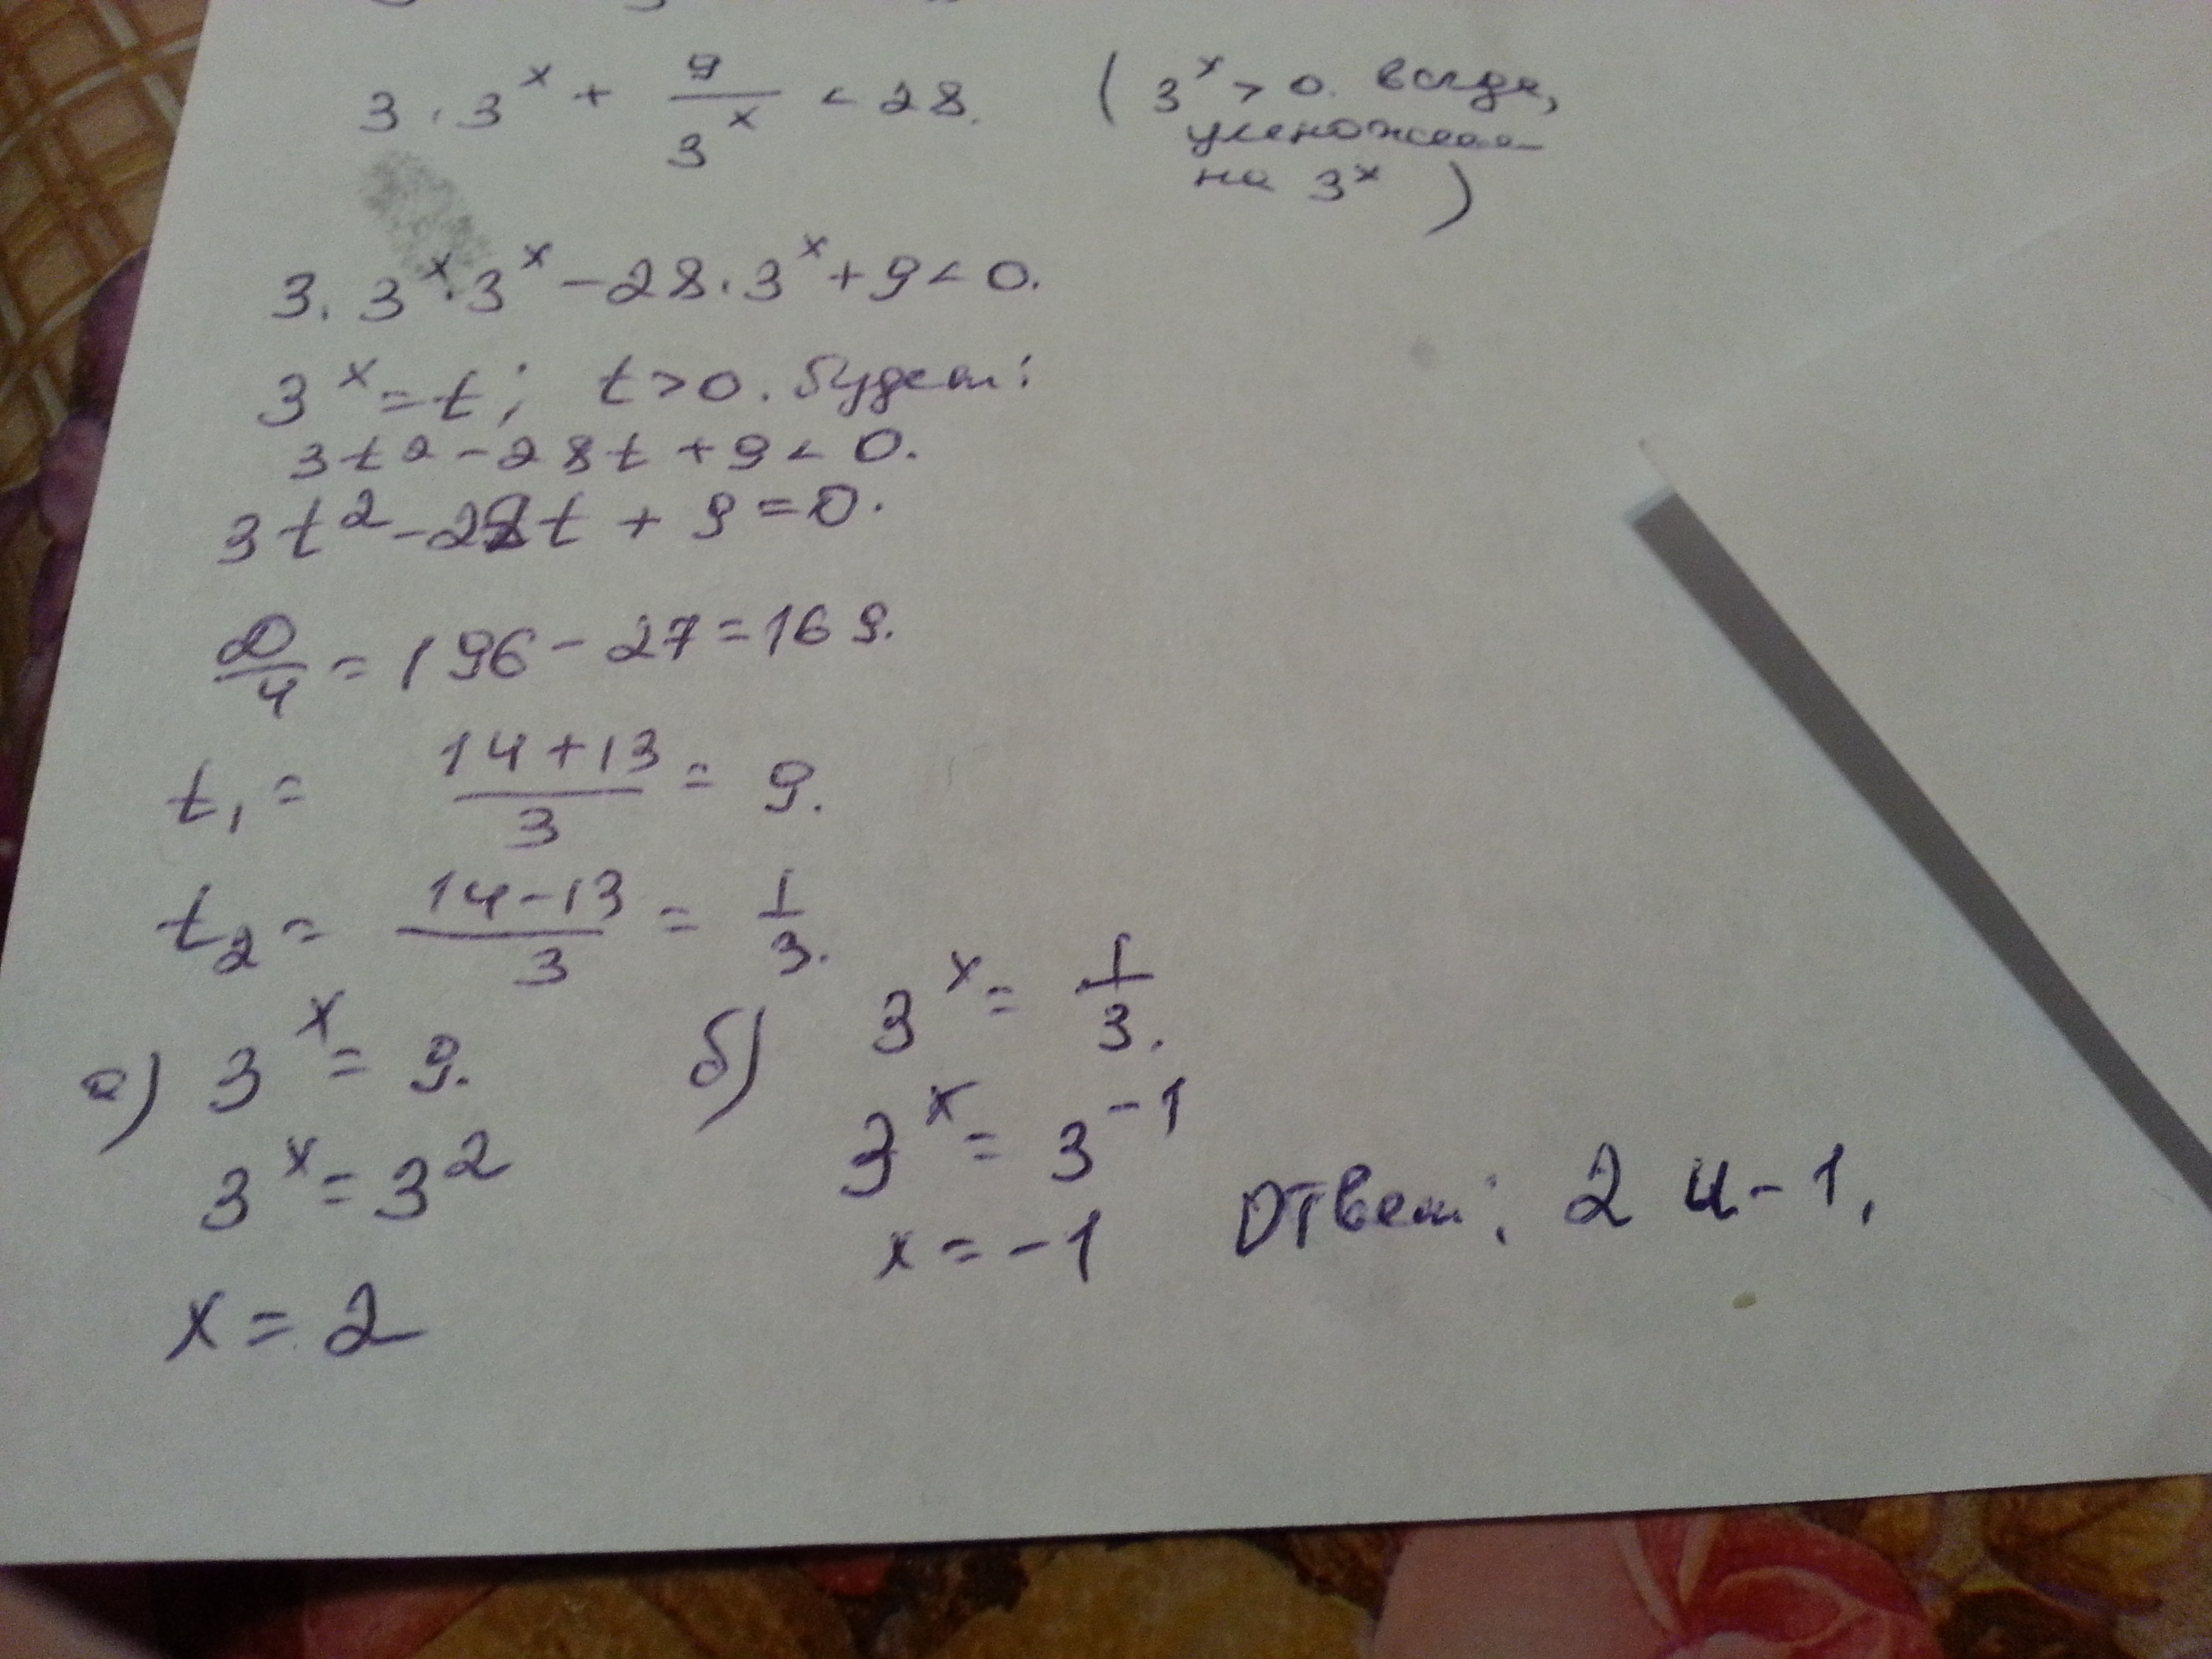 3 · 3^x + 9/3^x < 28. (3^x > 0. всегда,
умножаем
на 3^x)
3 · 3^x · 3^x − 28 · 3^x + 9 < 0.
3^x = t; t > 0. будет:
3t² − 28t + 9 < 0.
3t² − 28t + 9 = 0.
D/4 = 196 − 27 = 169.
t₁ = (14 + 13)/3 = 9.
t₂ = (14 − 13)/3 = 1/3.
а) 3^x = 9. б) 3^x = 1/3.
3^x = 3² 3^x = 3^−1
x = 2 x = −1 Ответ: 2 и −1.